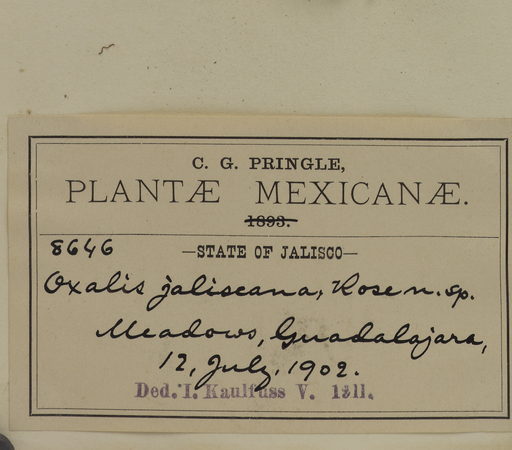 C. G. PRINGLE,
PLANTÆ MEXICANÆ.
1893.
8646 —STATE OF JALISCO—
Oxalis jaliscana, Rose n. sp.
Meadows, Guadalajara,
12, July, 1902.
Ded. I. Kaulfuss V.